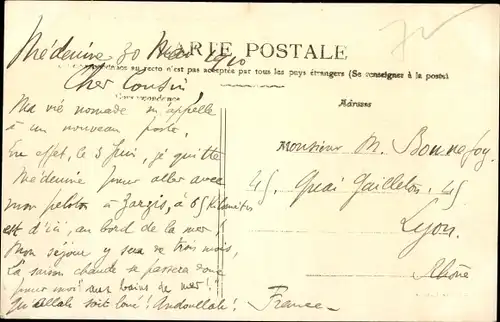 Médenine 30 Mai 1910
CARTE POSTALE
La Correspondance au recto n'est pas acceptée par tous les pays étrangers (Se renseigner à la poste)
Cher Cousin
Correspondance
Adresse
Ma vie nomade m'appelle
à un nouveau poste.
En effet, le 3 Juin, je quitte
Médenine pour aller avec
mon peloton à Zarzis, à 65 kilomètres
est d'ici, au bord de la mer!
Mon séjour y sera de trois mois,
La saison chaude se passera donc
pour moi aux bains de mer!!
Qu'Allah soit loué! Amdoullah!
Monsieur M. Bonnefoy
45, Quai Gailleton, 45
Lyon.
Rhône
France